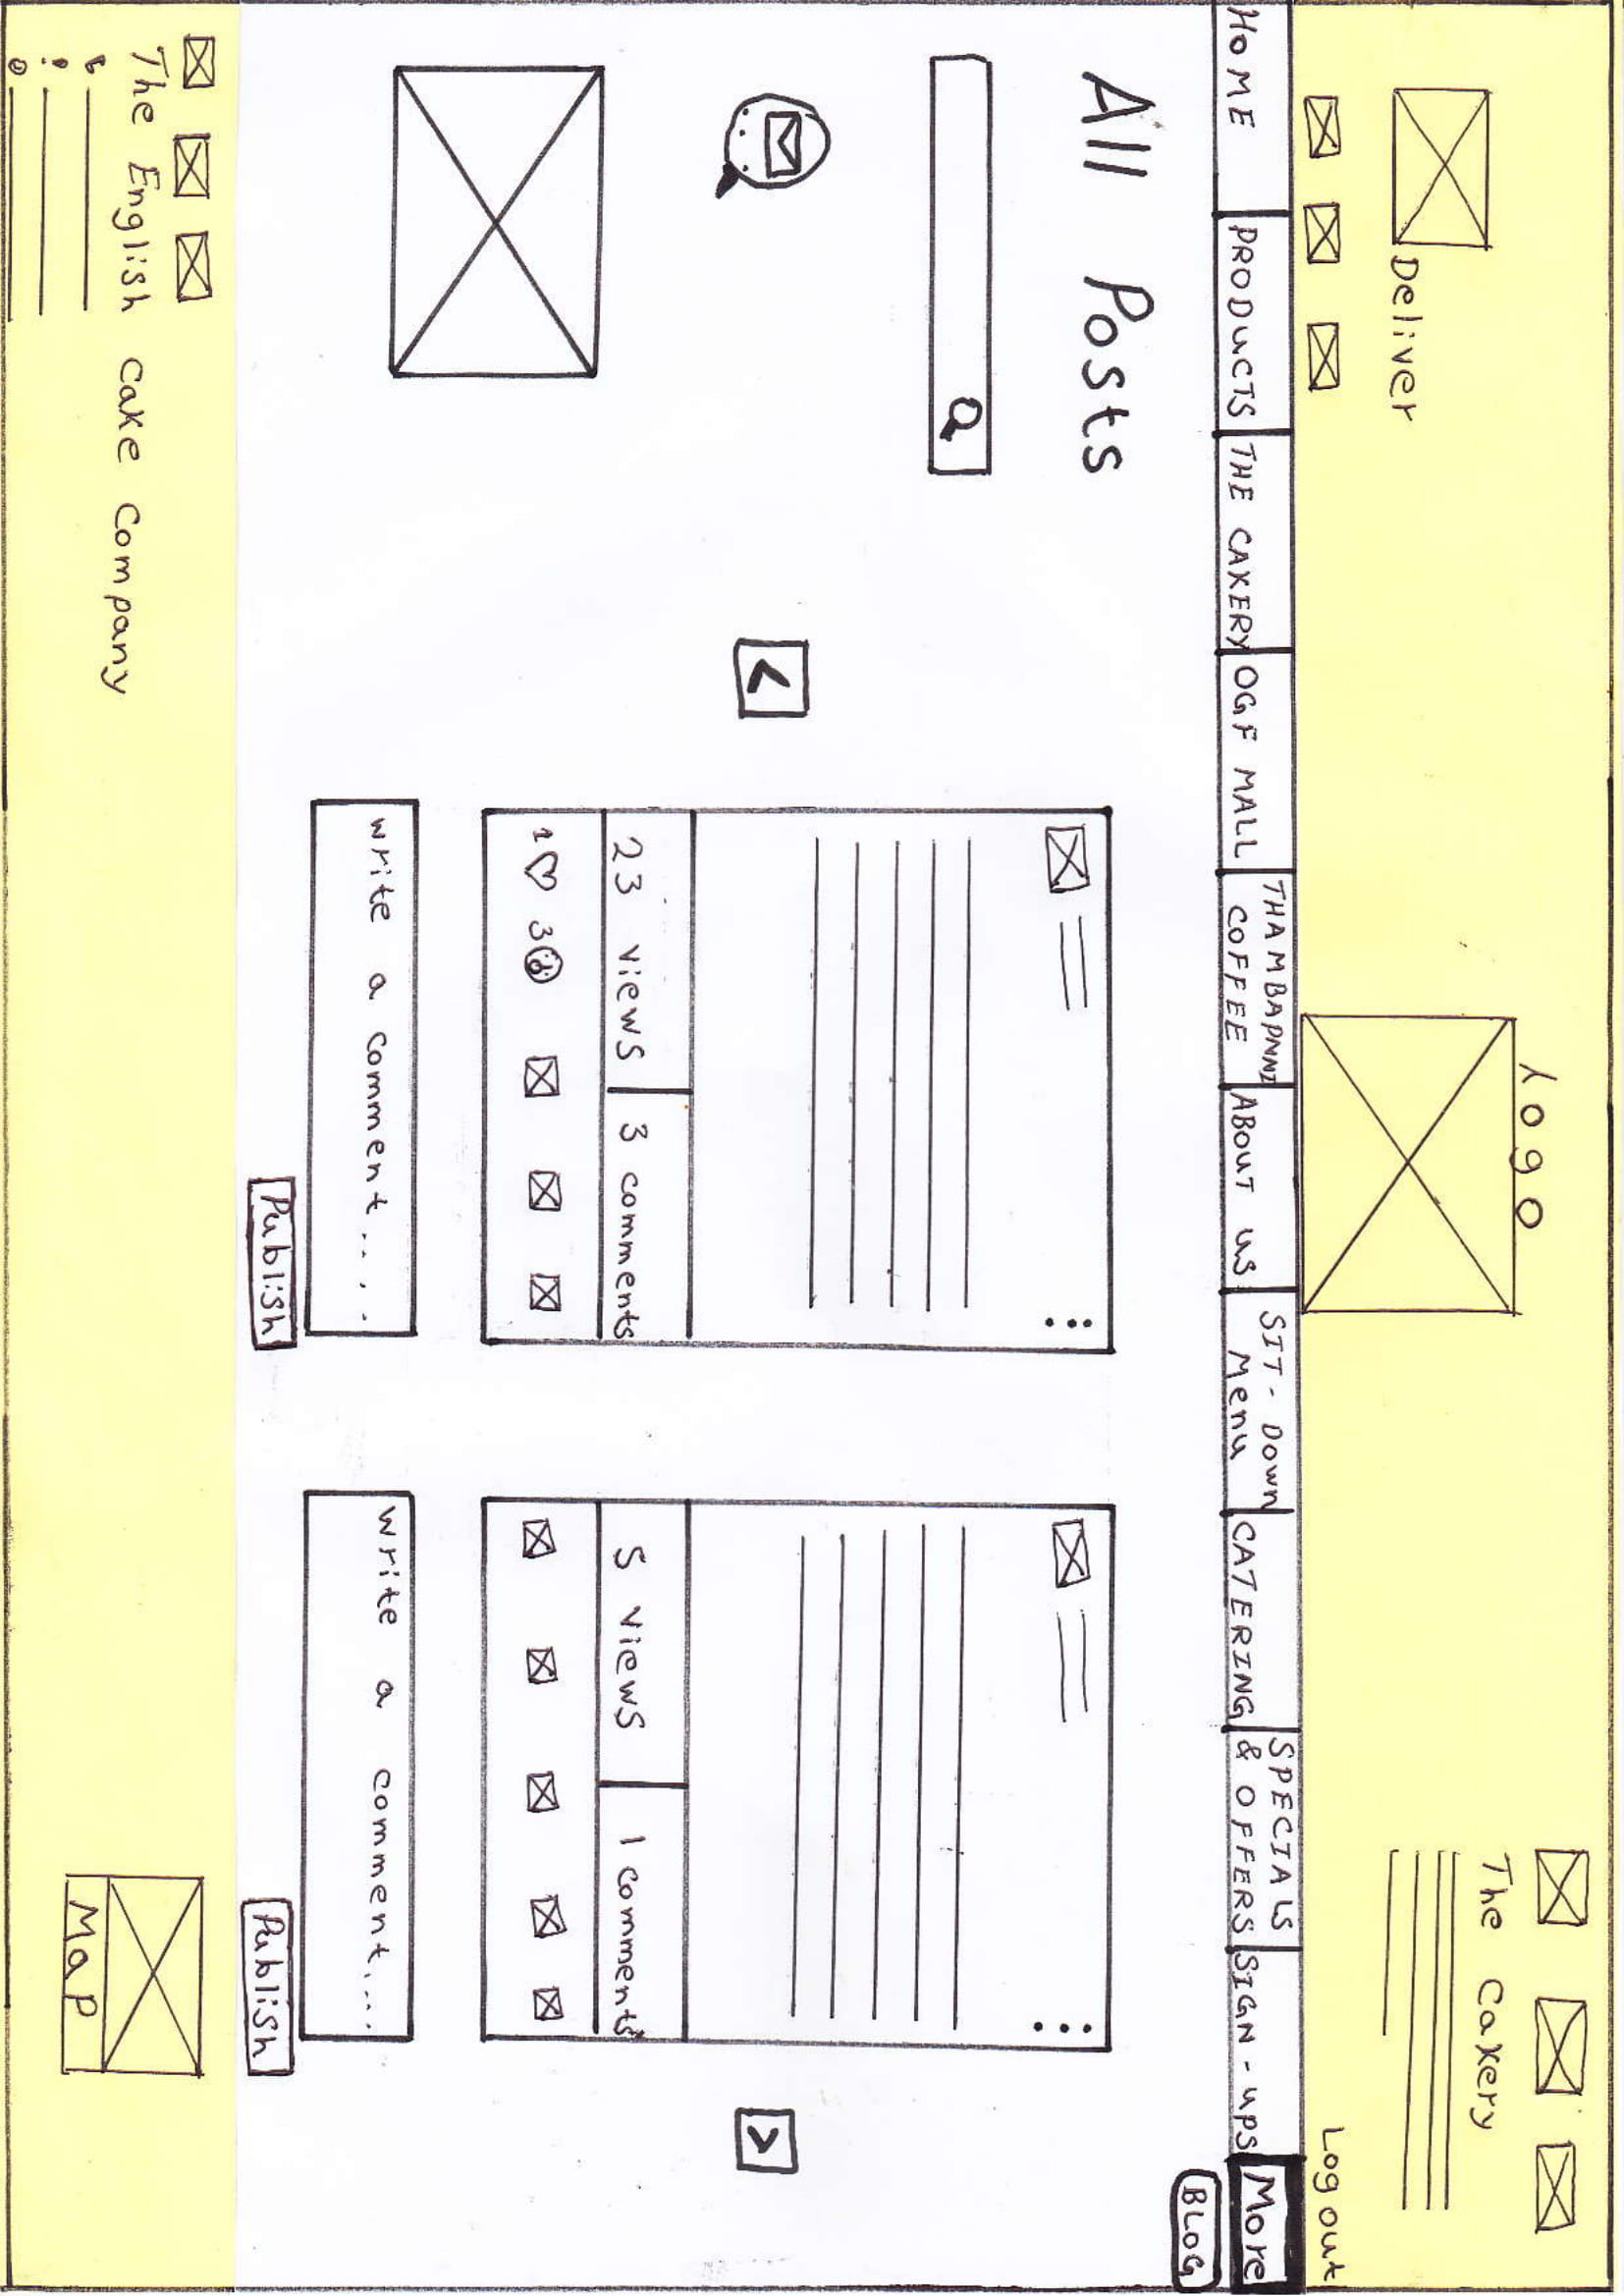 logo
The Cakery
Deliver
Log out
HOME
PRODUCTS
THE CAKERY
OGF MALL
THAMBAPNNI
COFFEE
ABOUT US
SIT - DOWN
Menu
CATERING
SPECIALS
& OFFERS
SIGN - UPS
More
BLOG
All Posts
23 views
3 comments
5 views
1 comments
1
3
write a comment....
write a comment....
Publish
Publish
The English cake company
MaP